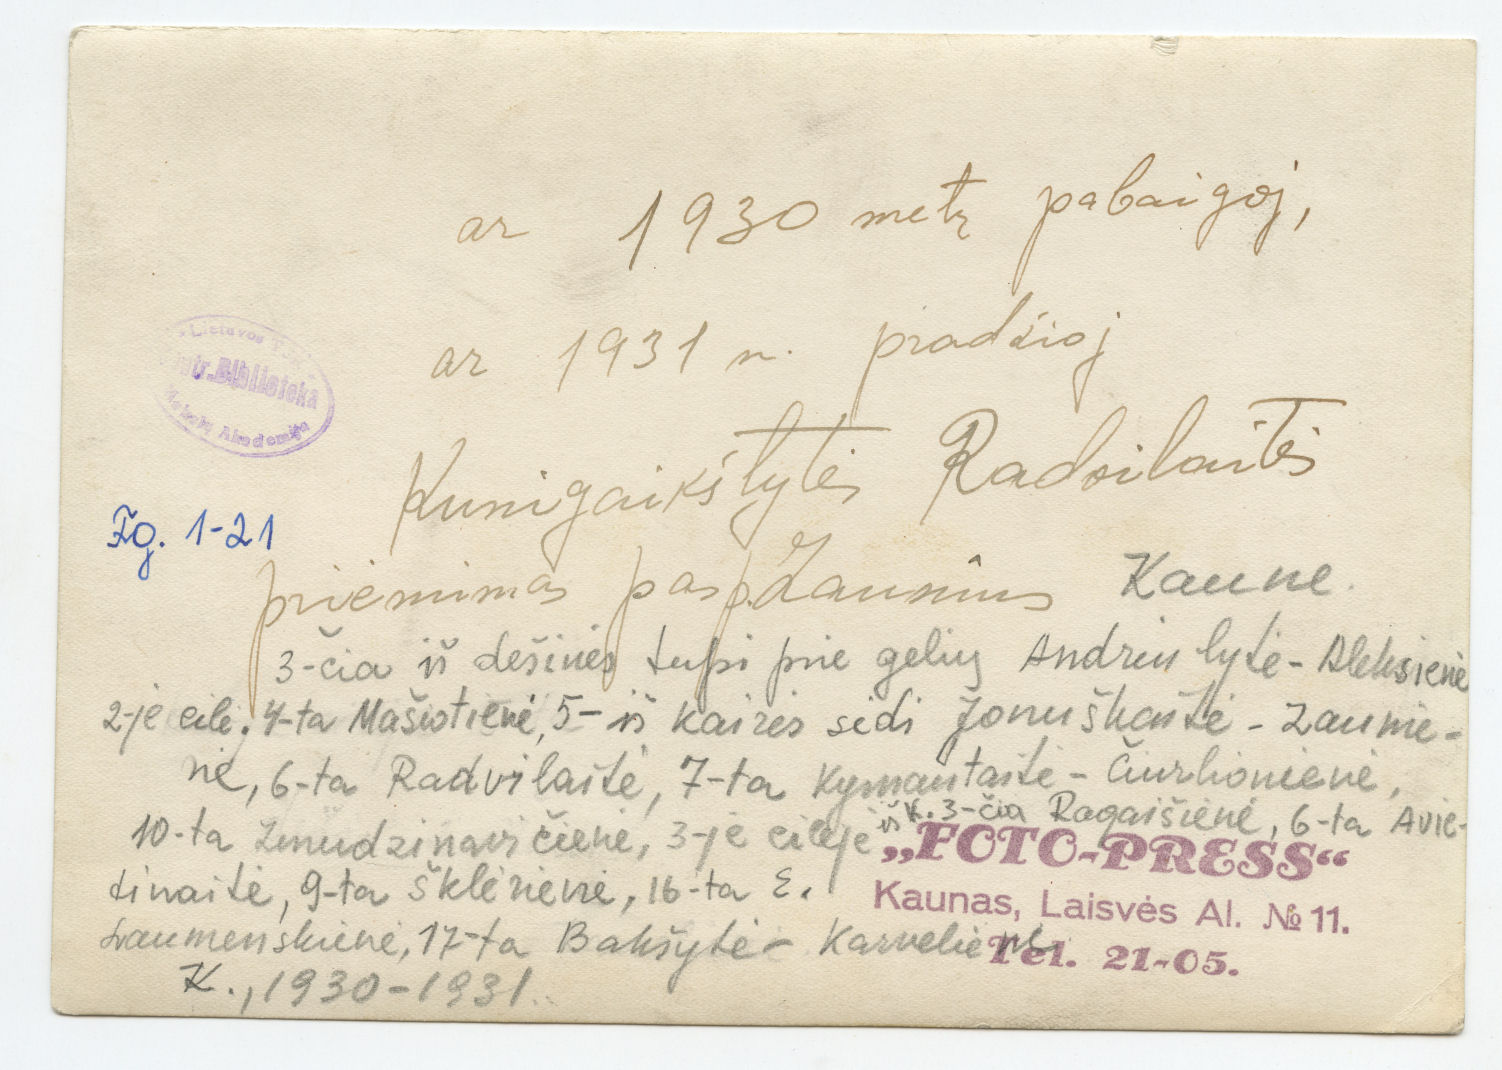 ar 1930 metų pabaigoj,
ar 1931 m. pradžioj
Kunigaikštytės Radvilaitės
priėmimas pas p. Zaunius Kaune.
Fg. 1-21
3-čia iš dešinės tupi prie gėlių Andriulytė-Aleksienė
2-je eilė, 4-ta Mašiotienė, 5- iš kairės sėdi Jonuškaitė - Zaunie-
nė, 6-ta Radvilaitė, 7-ta Kymantaitė - Čiurlionienė,
10-ta Žmuidzinavičienė, 3-je eilėje iš K. 3-čia Ragaišienė, 6-ta Avie-
tinaitė, 9-ta Šklėrienė, 16-ta E.
Draumenskienė, 17-ta Bakšytė - Karvelienė
K., 1930-1931.
Lietuvos
Biblioteka
Akademija
„FOTO-PRESS“
Kaunas, Laisvės Al. № 11.
Tel. 21-05.